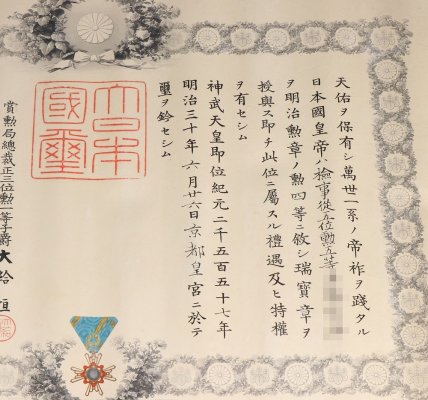 天佑ヲ保有シ萬世一系ノ帝祚ヲ踐タル
日本國皇帝ハ檢事從五位勲五等
ヲ明治勲章ノ勲四等ニ敘シ瑞寶章ヲ
授與ス即チ此位ニ屬スル禮遇及ヒ特權
ヲ有セシム
神武天皇即位紀元二千五百五十七年
明治三十年六月廿六日京都皇宮ニ於テ
璽ヲ鈐セシム
大日本
國璽
賞勲局總裁正三位勲一等子爵大給恒